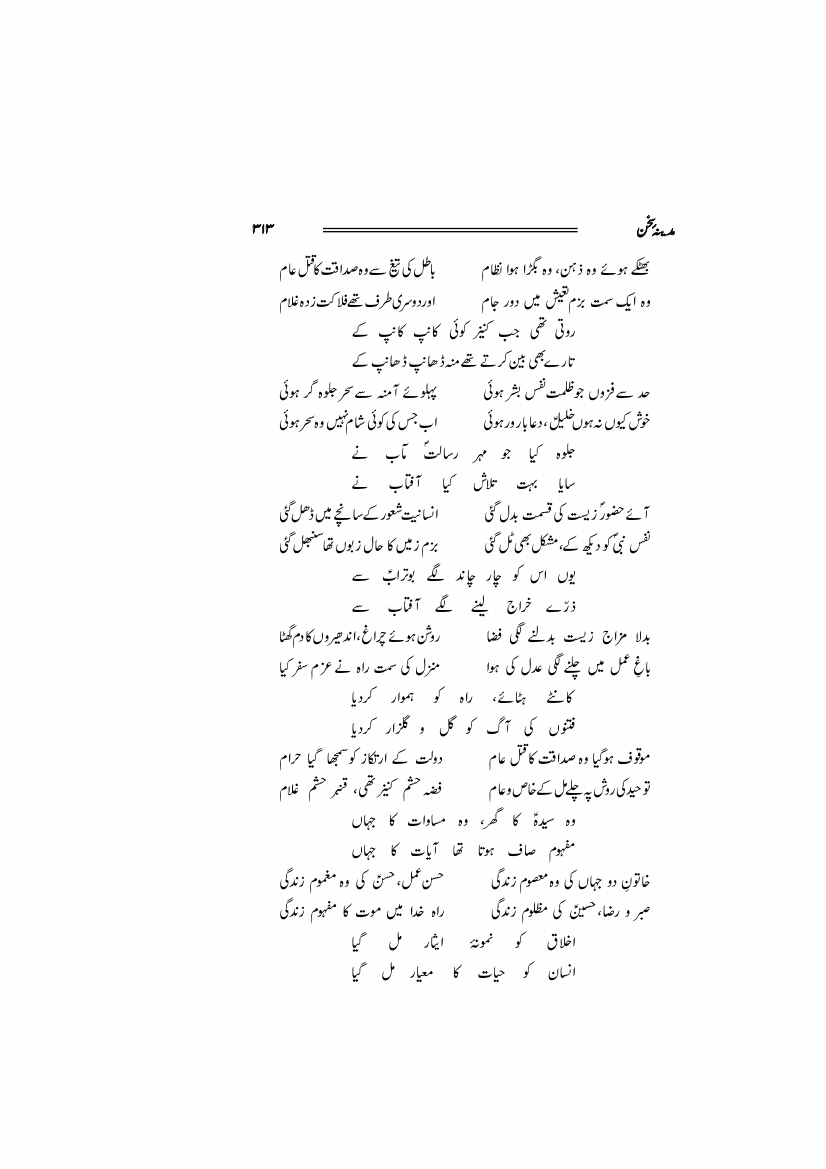 مدینۂ سخن ۳۱۳
بھٹکے ہوئے وہ ذہن، وہ بگڑا ہوا نظام باطل کی تیغ سے وہ صداقت کا قتل عام
وہ ایک سمت بزم تعیش میں دور جام اور دوسری طرف تھے فلاکت زدہ غلام
روتی تھی جب کنیز کوئی کانپ کانپ کے
تارے بھی بین کرتے تھے منہ ڈھانپ ڈھانپ کے
حد سے فزوں جو ظلمت نفس بشر ہوئی پہلوئے آمنہ سے سحر جلوہ گر ہوئی
خوش کیوں نہ ہوں خلیلؑ، دعا بارور ہوئی اب جس کی کوئی شام نہیں وہ سحر ہوئی
جلوہ کیا جو مہر رسالتؐ مآب نے
سایا بہت تلاش کیا آفتاب نے
آئے حضورؐ زیست کی قسمت بدل گئی انسانیت شعور کے سانچے میں ڈھل گئی
نفس نبیؐ کو دیکھ کے، مشکل بھی ٹل گئی بزم زمیں کا حال زبوں تھا سنبھل گئی
یوں اس کو چار چاند لگے بوترابؑ سے
ذرّے خراج لینے لگے آفتاب سے
بدلا مزاج زیست بدلنے لگی فضا روشن ہوئے چراغ، اندھیروں کا دم گھٹا
باغِ عمل میں چلنے لگی عدل کی ہوا منزل کی سمت راہ نے عزم سفر کیا
کانٹے ہٹائے، راہ کو ہموار کردیا
فتنوں کی آگ کو گل و گلزار کردیا
موقوف ہوگیا وہ صداقت کا قتل عام دولت کے ارتکاز کو سمجھا گیا حرام
توحید کی روش پہ چلے مل کے خاص و عام فضہ حشم کنیز تھی، قنبر حشم غلام
وہ سیدہؑ کا گھر، وہ مساوات کا جہاں
مفہوم صاف ہوتا تھا آیات کا جہاں
خاتونِ دو جہاں کی وہ معصوم زندگی حسن عمل، حسنؑ کی وہ مغموم زندگی
صبر و رضا، حسینؑ کی مظلوم زندگی راہ خدا میں موت کا مفہوم زندگی
اخلاق کو نمونۂ ایثار مل گیا
انسان کو حیات کا معیار مل گیا